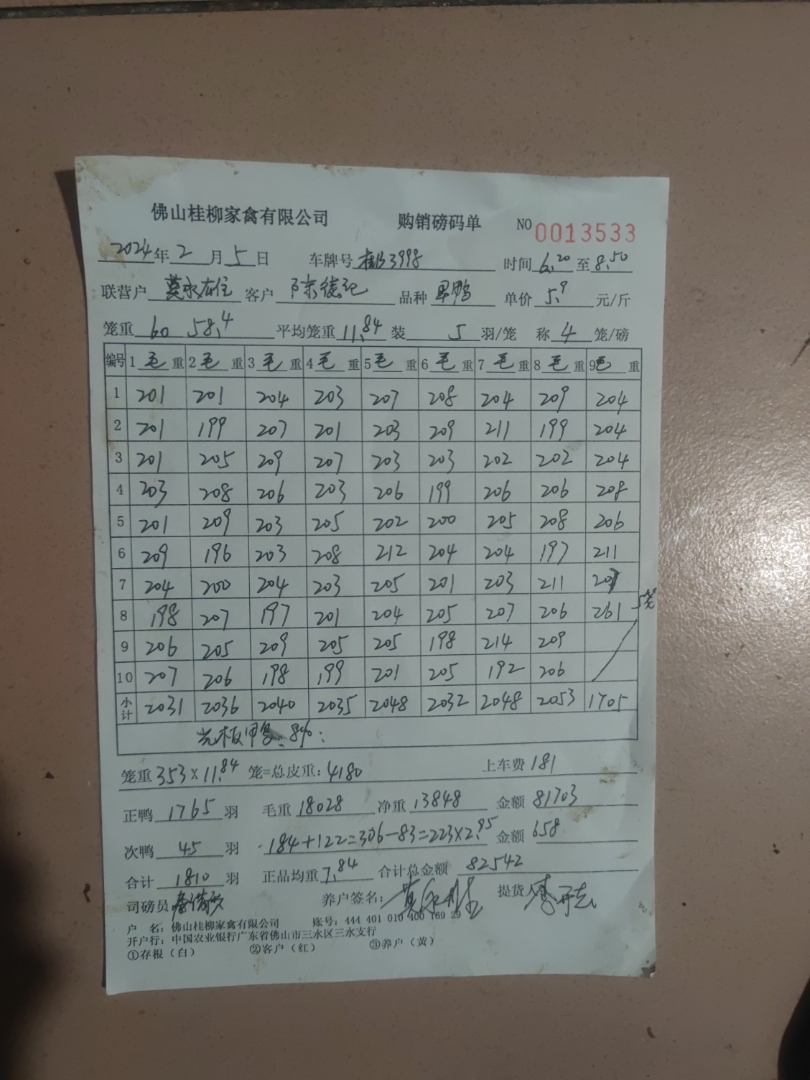 佛山桂柳家禽有限公司 购销磅码单 NO 0013533
2024年 2 月 5 日 车牌号 3998 时间 6.20 至 8.50
联营户 莫 客户 陈德记 品种 鸭 单价 5.9 元/斤
笼重 60 58.4 平均笼重 11.84 装 5 羽/笼 称 4 笼/磅
编号 1 毛 重 2 毛 重 3 毛 重 4 毛 重 5 毛 重 6 毛 重 7 毛 重 8 毛 重 9 毛 重
1 201 201 204 203 207 208 204 209 204
2 201 199 207 201 203 209 211 199 204
3 201 205 209 207 203 203 202 202 204
4 203 208 206 203 206 199 206 206 208
5 201 209 203 205 202 200 205 208 206
6 209 196 203 208 212 204 204 197 211
7 204 200 204 203 205 201 203 211
8 198 207 197 201 204 205 207 206 261 5笼
9 206 205 209 205 205 198 214 209
10 207 206 198 199 201 205 192 206
小计 2031 2036 2040 2035 2048 2032 2048 2053 1705
笼重 353×11.84 笼=总皮重: 4180 上车费 181
正鸭 1765 羽 毛重 18028 净重 13848 金额 81703
次鸭 45 羽 184+122=306-83=223×2.95 金额 658
合计 1810 羽 正品均重 7.84 合计总金额 82542
司磅员 养户签名: 提货人
户 名: 佛山桂柳家禽有限公司 账号: 444 401 010 400 169 29
开户行: 中国农业银行广东省佛山市三水区三水支行
①存根（白） ②客户（红） ③养户（黄）